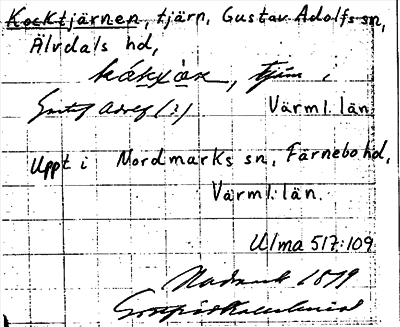 Kocktjärnen, tjärn, Gustav Adolfs sn,
Älvdals hd,
tjärn i
Gustaf Adolf (?) Värml. län
Uppt i Nordmarks sn, Färnebo hd,
Värml. län.
Ulma 517:109
1879